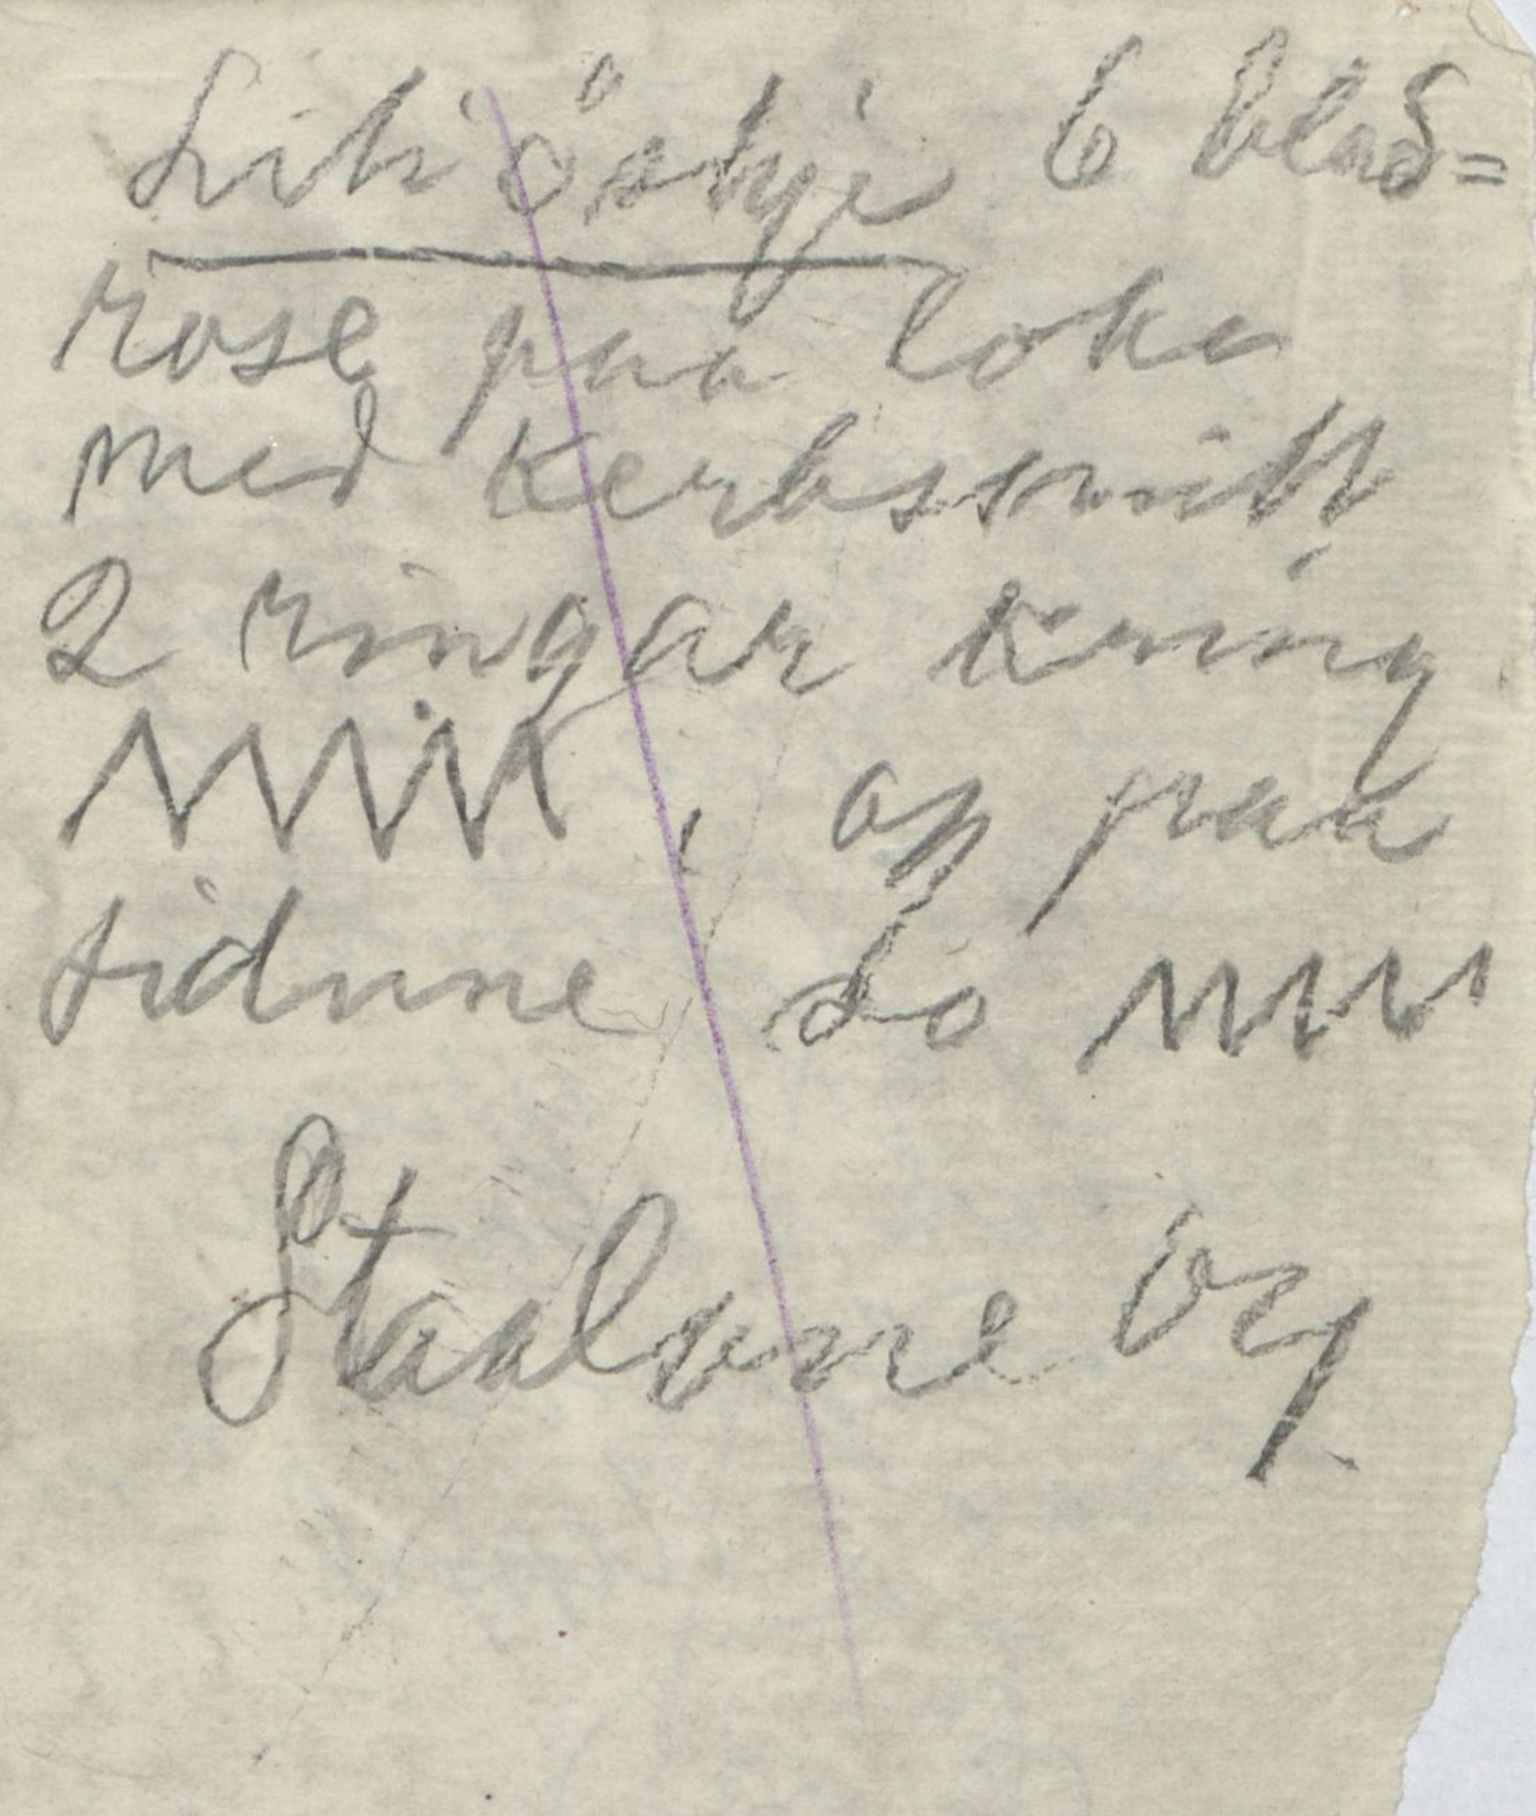 Liti öskje 6 blad=
rose paa loke
med Kerbssnitt
2 ringar kring
, og paa
sidune so
Staalane Öy.